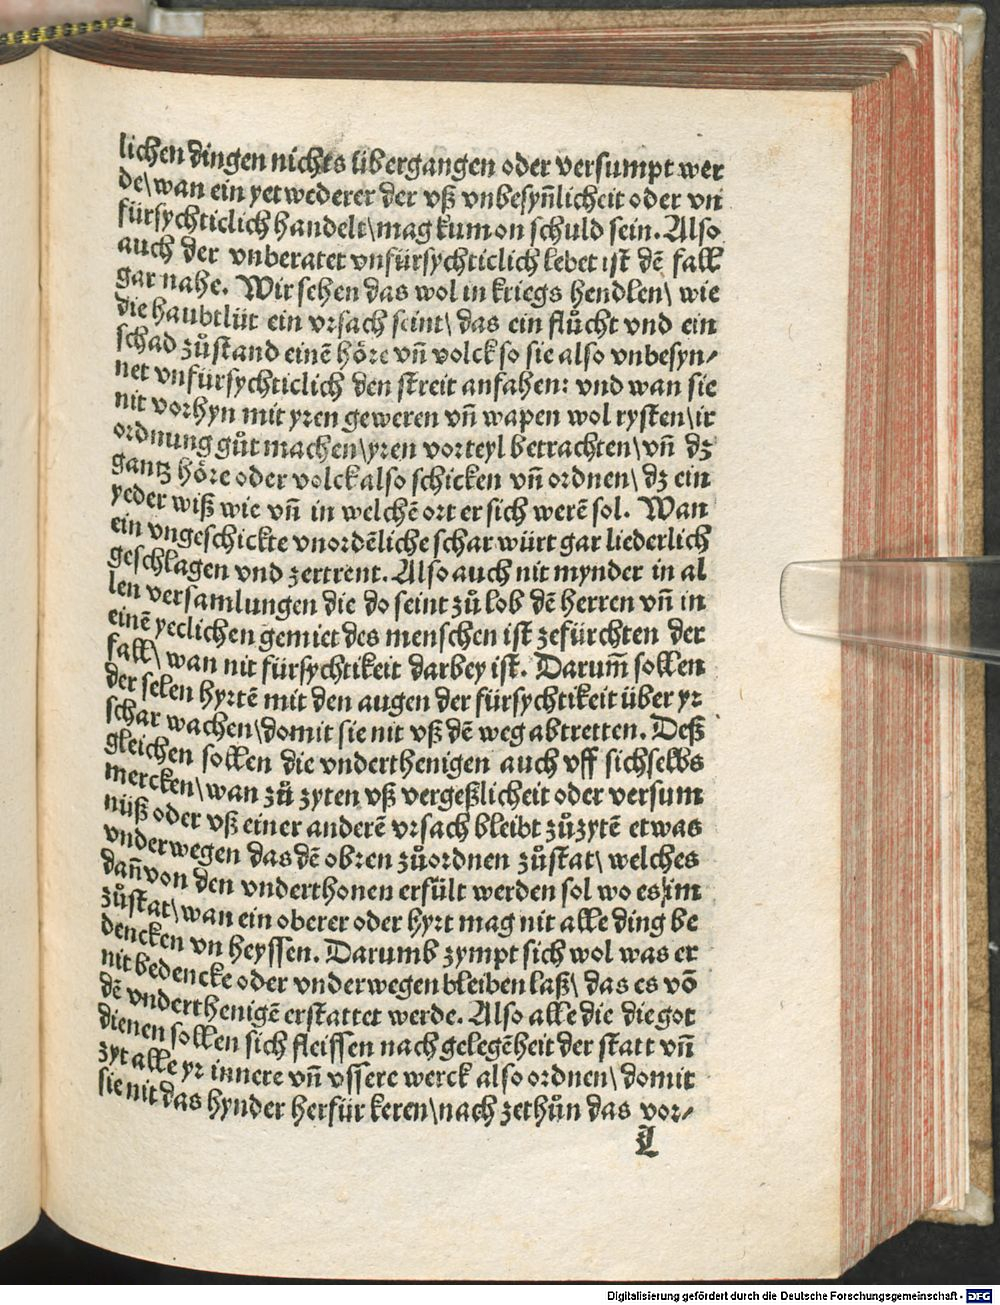 lichen dingen nichts übergangen oder versumpt wer
de\wan ein yetwederer der vß vnbesyñlicheit oder vn
fürsychticlich handelt\mag kum on schuld sein. Also
auch der vnberatet vnfürsychticlich lebet ist dē fall
gar nahe. Wir sehen das wol in kriegs hendlen\ wie
die haubtlüt ein vrsach seint\ das ein flůcht vnd ein
schad zůstand einē höre vñ volck so sie also vnbesyn⸗
net vnfürsychticlich den streit anfahen: vnd wan sie
nit vorhyn mit yren geweren vñ wapen wol rysten\ir
ordnung gůt machen\yren vorteyl betrachten\vñ dz
gantz höre oder volck also schicken vñ ordnen\ dz ein
yeder wiß wie vñ in welchē ort er sich werē sol. Wan
ein vngeschickte vnordēliche schar würt gar liederlich
geschlagen vnd zertrent. Also auch nit mynder in al
len versamlungen die do seint zů lob dē herren vñ in
einē yeclichen gemiet des menschen ist zefürchten der
fall\ wan nit fürsychtikeit darbey ist. Darum̄ sollen
der selen hyrtē mit den augen der fürsychtikeit über yr
schar wachen\domit sie nit vß dē weg abtretten. Deß
gleichen sollen die vnderthenigen auch vff sichselbs
mercken\wan zů zyten vß vergeßlicheit oder versum
nüß oder vß einer anderē vrsach bleibt zůzytē etwas
vnderwegen das dē obren zůordnen zůstat\ welches
dañ von den vnderthonen erfült werden sol wo es im
zůstat\wan ein oberer oder hyrt mag nit alle ding be
dencken vn heyssen. Darumb zympt sich wol was er
nit bedencke oder vnderwegen bleiben laß\ das es vō
dē vnderthenigē erstattet werde. Also alle die die got
dienen sollen sich fleissen nach gelegēheit der statt vñ
zyt alle yr innere vñ vssere werck also ordnen\ domit
sie nit das hynder herfür keren\nach zethůn das vor⸗
L
Digitalisierung gefördert durch die Deutsche Forschungsgemeinschaft - DFG